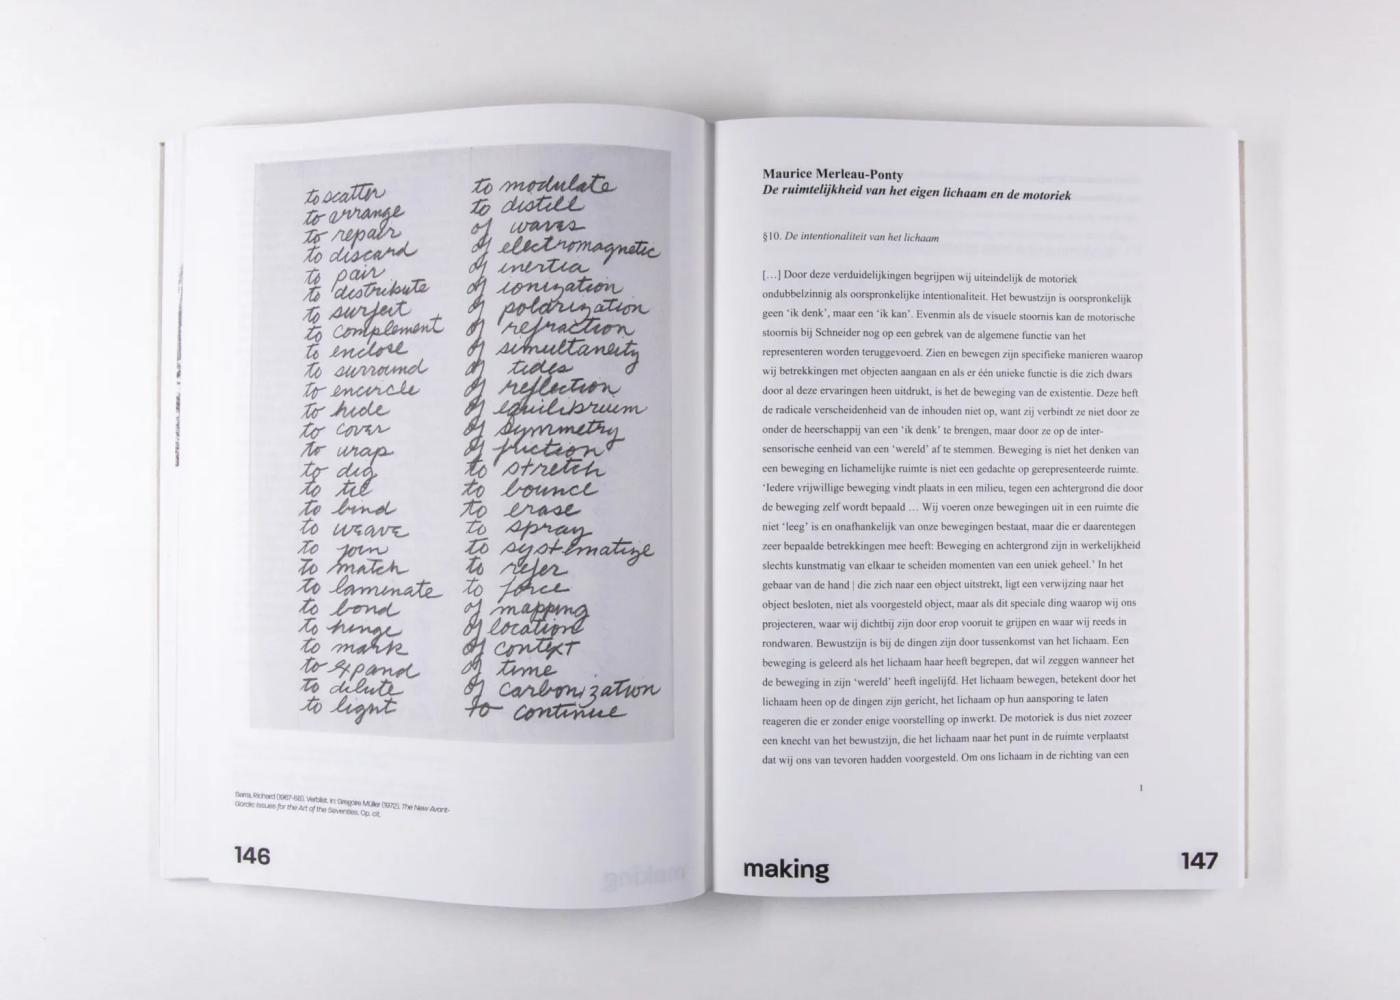 to scatter
to arrange
to repair
to discard
to pair
to distribute
to surfeit
to complement
to enclose
to surround
to encircle
to hide
to cover
to wrap
to dig
to tie
to bind
to weave
to join
to match
to laminate
to bond
to hinge
to mark
to expand
to dilute
to light
to modulate
to distill
of waves
of electromagnetic
of inertia
of ionization
of polarization
of refraction
of simultaneity
of tides
of reflection
of equilibrium
of symmetry
of friction
to stretch
to bounce
to erase
to spray
to systematize
to refer
to force
of mapping
of location
of context
of time
of carbonization
to continue
Serra, Richard (1967-68). Verblist. In: Gregoire Müller (1972). The New Avant-
Garde: Issues for the Art of the Seventies. Op. cit.
146
Maurice Merleau-Ponty
De ruimtelijkheid van het eigen lichaam en de motoriek
§10. De intentionaliteit van het lichaam
[…] Door deze verduidelijkingen begrijpen wij uiteindelijk de motoriek
ondubbelzinnig als oorspronkelijke intentionaliteit. Het bewustzijn is oorspronkelijk
geen ‘ik denk’, maar een ‘ik kan’. Evenmin als de visuele stoornis kan de motorische
stoornis bij Schneider nog op een gebrek van de algemene functie van het
representeren worden teruggevoerd. Zien en bewegen zijn specifieke manieren waarop
wij betrekkingen met objecten aangaan en als er één unieke functie is die zich dwars
door al deze ervaringen heen uitdrukt, is het de beweging van de existentie. Deze heft
de radicale verscheidenheid van de inhouden niet op, want zij verbindt ze niet door ze
onder de heerschappij van een ‘ik denk’ te brengen, maar door ze op de inter-
sensorische eenheid van een ‘wereld’ af te stemmen. Beweging is niet het denken van
een beweging en lichamelijke ruimte is niet een gedachte op gerepresenteerde ruimte.
‘Iedere vrijwillige beweging vindt plaats in een milieu, tegen een achtergrond die door
de beweging zelf wordt bepaald … Wij voeren onze bewegingen uit in een ruimte die
niet ‘leeg’ is en onafhankelijk van onze bewegingen bestaat, maar die er daarentegen
zeer bepaalde betrekkingen mee heeft: Beweging en achtergrond zijn in werkelijkheid
slechts kunstmatig van elkaar te scheiden momenten van een uniek geheel.’ In het
gebaar van de hand | die zich naar een object uitstrekt, ligt een verwijzing naar het
object besloten, niet als voorgesteld object, maar als dit speciale ding waarop wij ons
projecteren, waar wij dichtbij zijn door erop vooruit te grijpen en waar wij reeds in
rondwaren. Bewustzijn is bij de dingen zijn door tussenkomst van het lichaam. Een
beweging is geleerd als het lichaam haar heeft begrepen, dat wil zeggen wanneer het
de beweging in zijn ‘wereld’ heeft ingelijfd. Het lichaam bewegen, betekent door het
lichaam heen op de dingen zijn gericht, het lichaam op hun aansporing te laten
reageren die er zonder enige voorstelling op inwerkt. De motoriek is dus niet zozeer
een knecht van het bewustzijn, die het lichaam naar het punt in de ruimte verplaatst
dat wij ons van tevoren hadden voorgesteld. Om ons lichaam in de richting van een
1
making
147